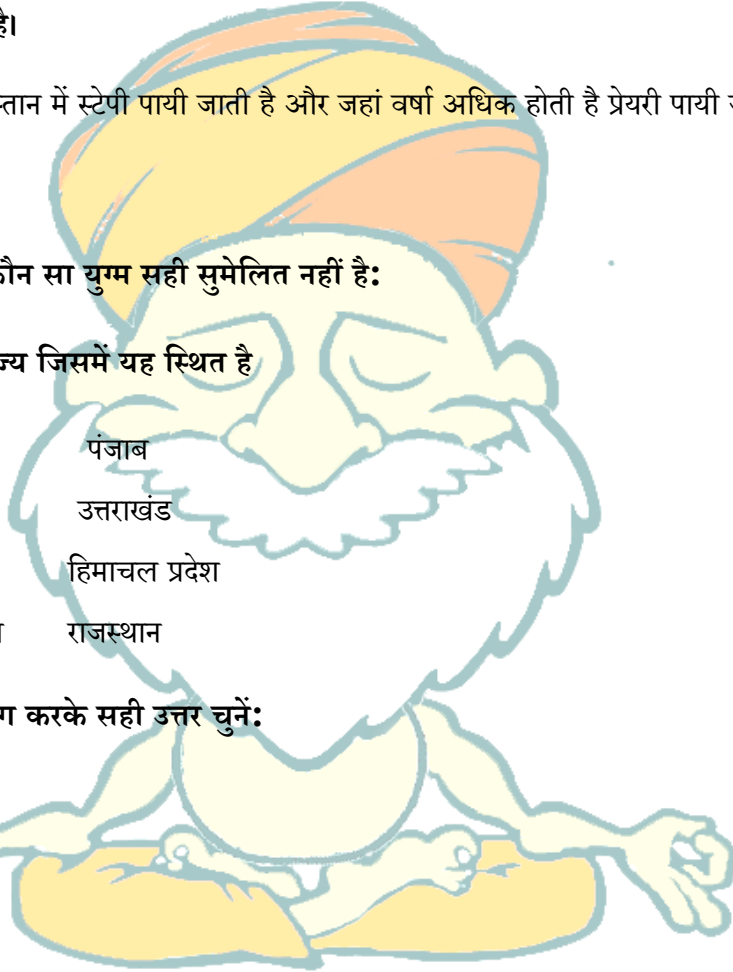 है।
स्तान में स्टेपी पायी जाती है और जहां वर्षा अधिक होती है प्रेयरी पायी
कौन सा युग्म सही सुमेलित नहीं है:
ज्य जिसमें यह स्थित है
पंजाब
उत्तराखंड
हिमाचल प्रदेश
राजस्थान
ग करके सही उत्तर चुनें: